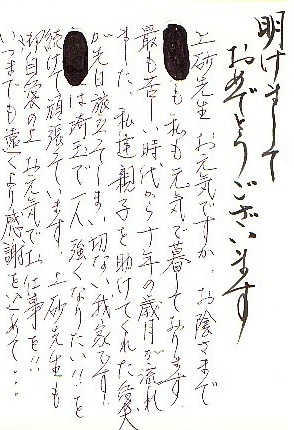 明けまして
おめでとうございます
上砂先生 お元気ですか。お陰さまで
も私も元気で暮しております。
最も苦しい時代から十年の歳月が流れ
ました。私達親子を助けてくれた愛犬
が先日旅立ちました。切ない我家です!
は埼玉で一人、強くなりたい!!を
続けて頑張っています。上砂先生も
御自愛の上お元気でお仕事を!!
いつまでも遠くより感謝を込めて・・・